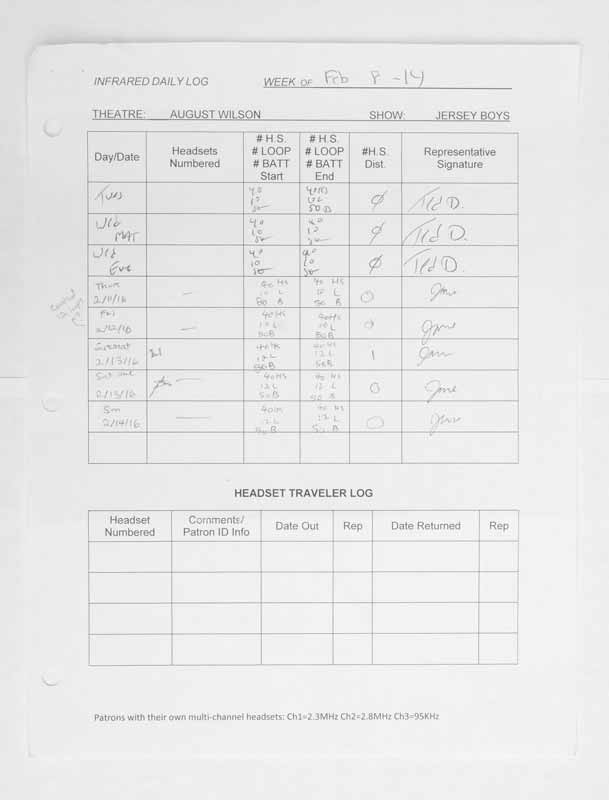 INFRARED DAILY LOG WEEK OF Feb 8 - 14
THEATRE: AUGUST WILSON SHOW: JERSEY BOYS
Day/Date Headsets Numbered # H.S. # LOOP # BATT Start # H.S. # LOOP # BATT End #H.S. Dist. Representative Signature
Tues 40 10 50 40 50 Ø Ted D.
Wed MAT 40 10 50 40 10 50 Ø Ted D.
Wed Eve 40 10 50 40 10 50 Ø Ted D.
Thur 2/11/16 — 40 HS 10 L 50 B 40 HS 12 L 50 B 0
Fri 2/12/16 — 40HS 12L 50B 40HS 10L 50B 0
2/13/16 40HS 12L 50B 40 HS 12 L 50B 1
Sat eve 2/13/16 — 40HS 12L 50B 40 HS 12 L 50 B 0
Sun 2/14/16 — 40HS 12L 50B 40 HS 12 L 50 B 0
HEADSET TRAVELER LOG
Headset Numbered Comments/ Patron ID Info Date Out Rep Date Returned Rep
Patrons with their own multi-channel headsets: Ch1=2.3MHz Ch2=2.8MHz Ch3=95KHz